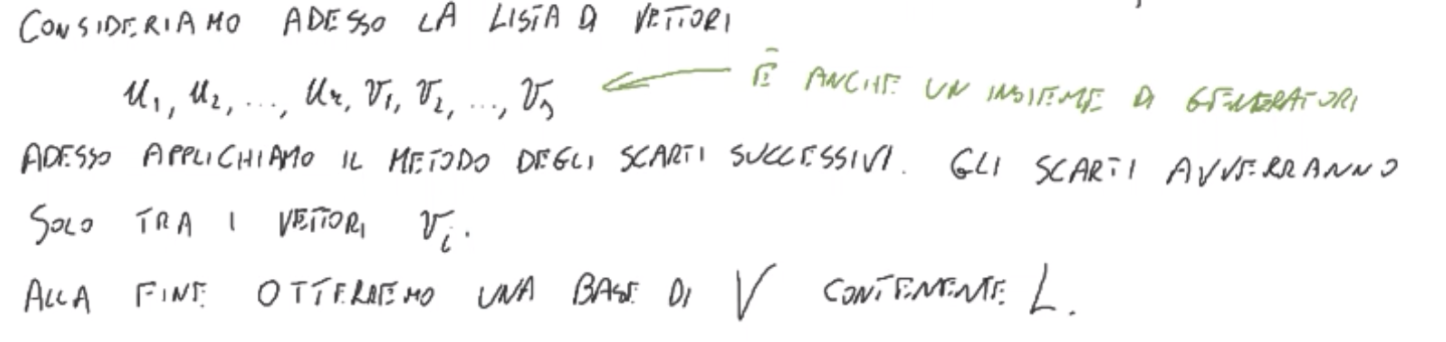 CONSIDERIAMO ADESSO LA LISTA DI VETTORI
u₁, u₂, ..., uᵣ, v₁, v₂, ..., vₛ ← È ANCHE UN INSIEME DI GENERATORI
ADESSO APPLICHIAMO IL METODO DEGLI SCARTI SUCCESSIVI. GLI SCARTI AVVERRANNO
SOLO TRA I VETTORI vᵢ.
ALLA FINE OTTERREMO UNA BASE DI V CONTENENTE L.